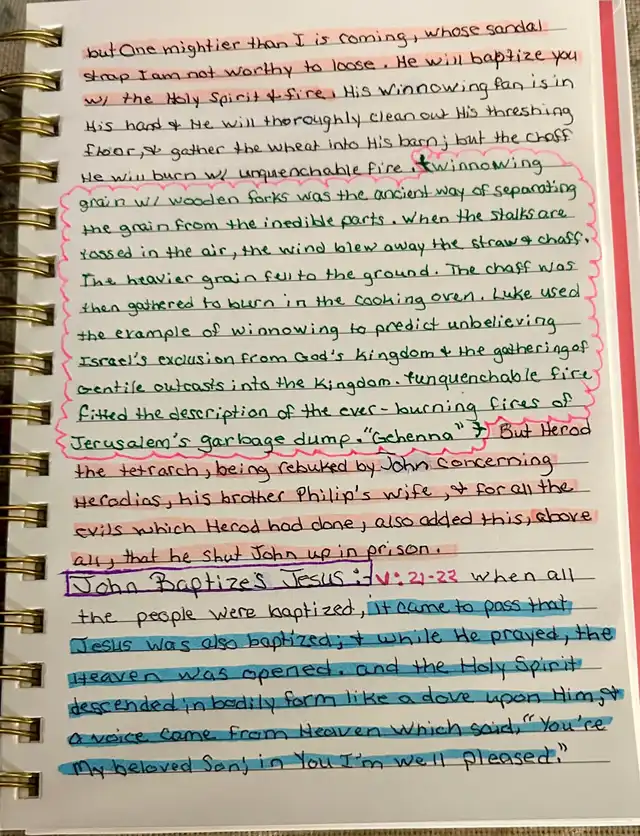 but One mightier than I is coming, whose sandal
strap I am not worthy to loose. He will baptize you
w/ the Holy Spirit & fire. His winnowing fan is in
His hand & He will thoroughly clean out His threshing
floor, & gather the wheat into His barn; but the chaff
He will burn w/ unquenchable fire. †winnowing
grain w/ wooden forks was the ancient way of separating
the grain from the inedible parts. When the stalks are
tossed in the air, the wind blew away the straw & chaff.
The heavier grain fell to the ground. The chaff was
then gathered to burn in the cooking oven. Luke used
the example of winnowing to predict unbelieving
Israel's exclusion from God's Kingdom & the gathering of
Gentile outcasts into the Kingdom. †unquenchable fire
fitted the description of the ever-burning fires of
Jerusalem's garbage dump. "Gehenna" † But Herod
the tetrarch, being rebuked by John concerning
Herodias, his brother Philip's wife, & for all the
evils which Herod had done, also added this, above
all, that he shut John up in prison.
John Baptizes Jesus: V: 21-22 when all
the people were baptized, it came to pass that
Jesus was also baptized; & while He prayed, the
Heaven was opened. and the Holy Spirit
descended in bodily form like a dove upon Him, &
a voice came from Heaven which said, "You're
My beloved Son; in You I'm well pleased."